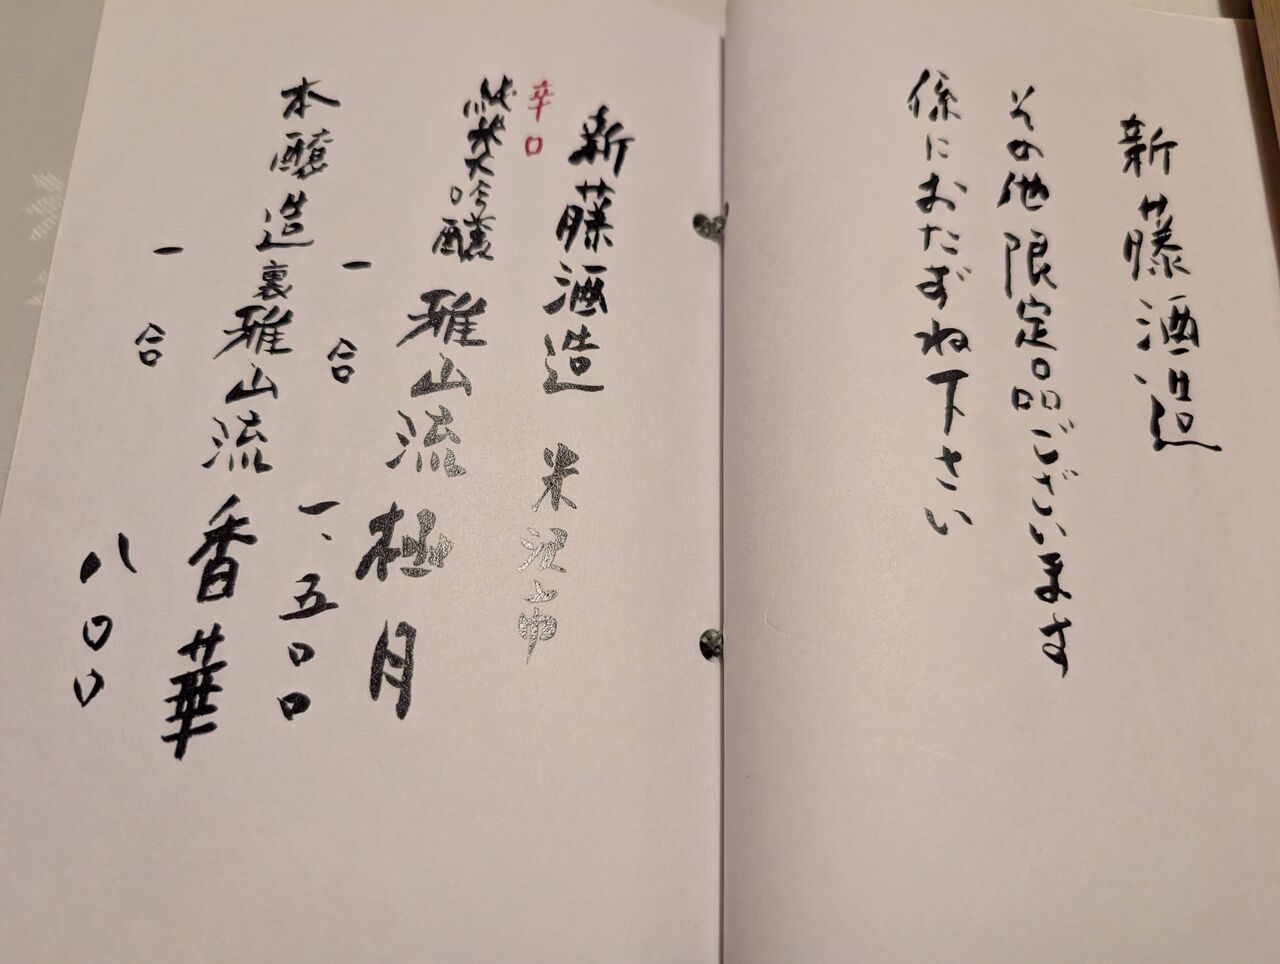 新藤酒造
その他限定品ございます
係におたずね下さい
新藤酒造 米沢市
辛口
純米大吟醸 雅山流 極月
一合 一、五〇〇
本醸造 裏雅山流 香華
一合 八〇〇